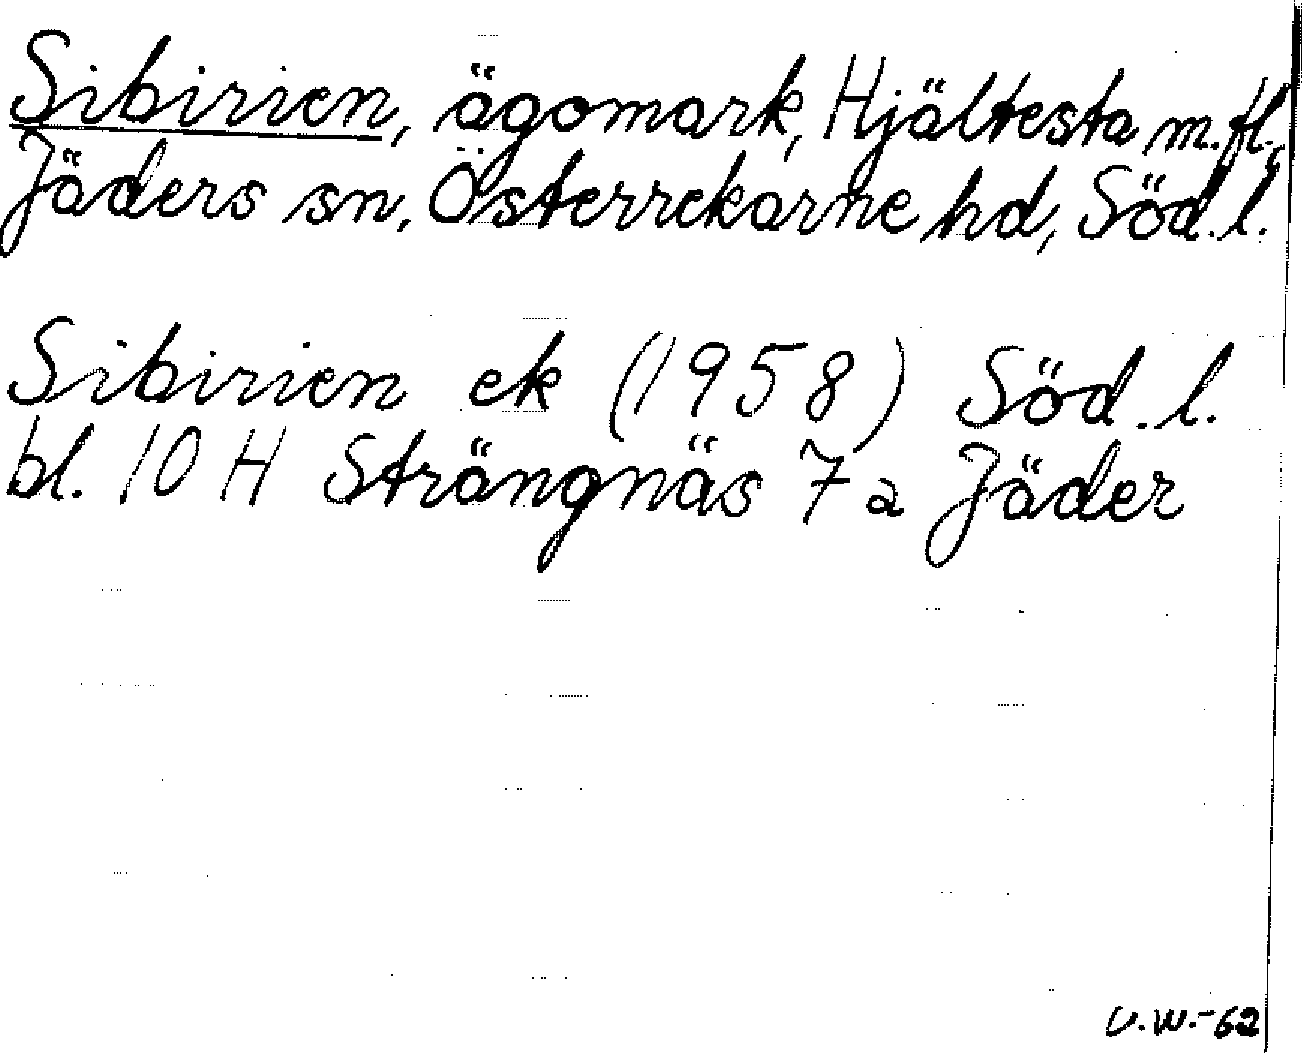 Sibirien, ägomark, Hjältesta m.fl.,
Jäders sn, Österrekarne hd, Söd. l.
Sibirien ek (1958) Söd. l.
bl. 10 H Strängnäs 7 a Jäder
U.W.-62